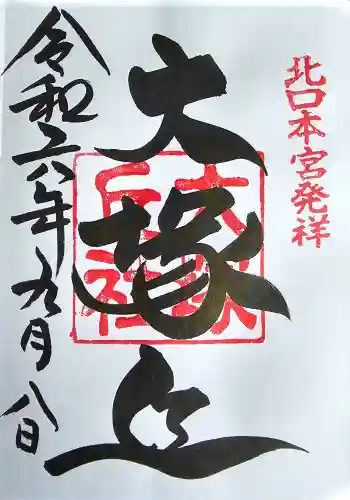 北口本宮発祥
大塚丘
大塚
丘社
令和六年九月八日